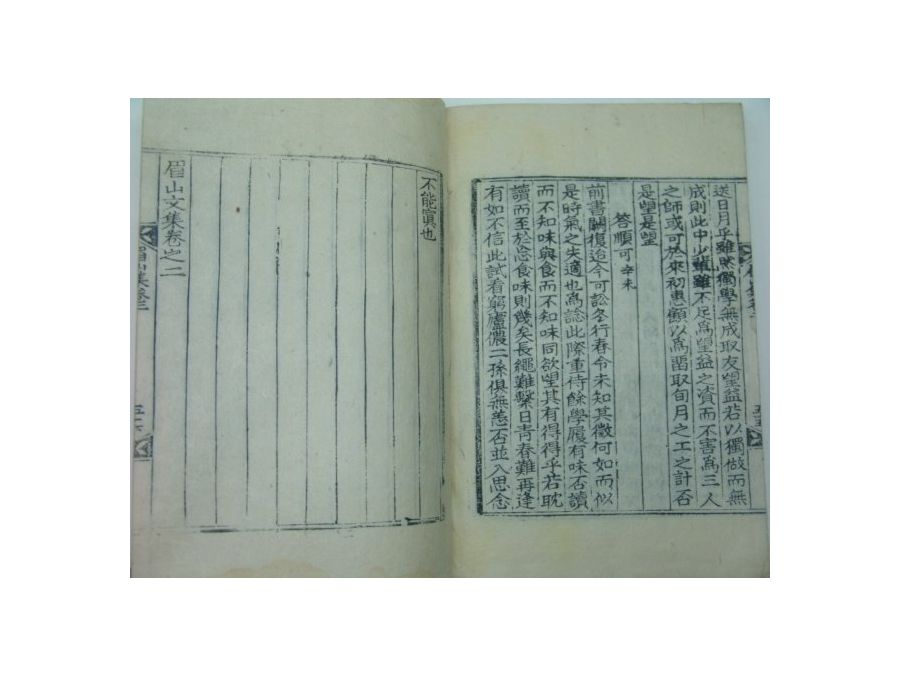 送日月乎雖然獨學無成取友望益若以獨做而無
成則此中少輩雖不足爲望益之資而不害爲三人
之師或可於來初惠顧以爲留取旬月之工之計否
是望是望
答順可辛未
前書闕復迨今可訟冬行春令未知其徵何如而似
是時氣之失適也爲諗此際重侍餘學履有味否讀
而不知味與食而不知味同欲望其有得得乎若耽
讀而至於忘食味則幾矣長繩難繫日靑春難再逢
有如不信此試看窮廬儂二孫俱無恙否並入思念
不能寘也
眉山文集卷之二
眉山集卷二
五十六